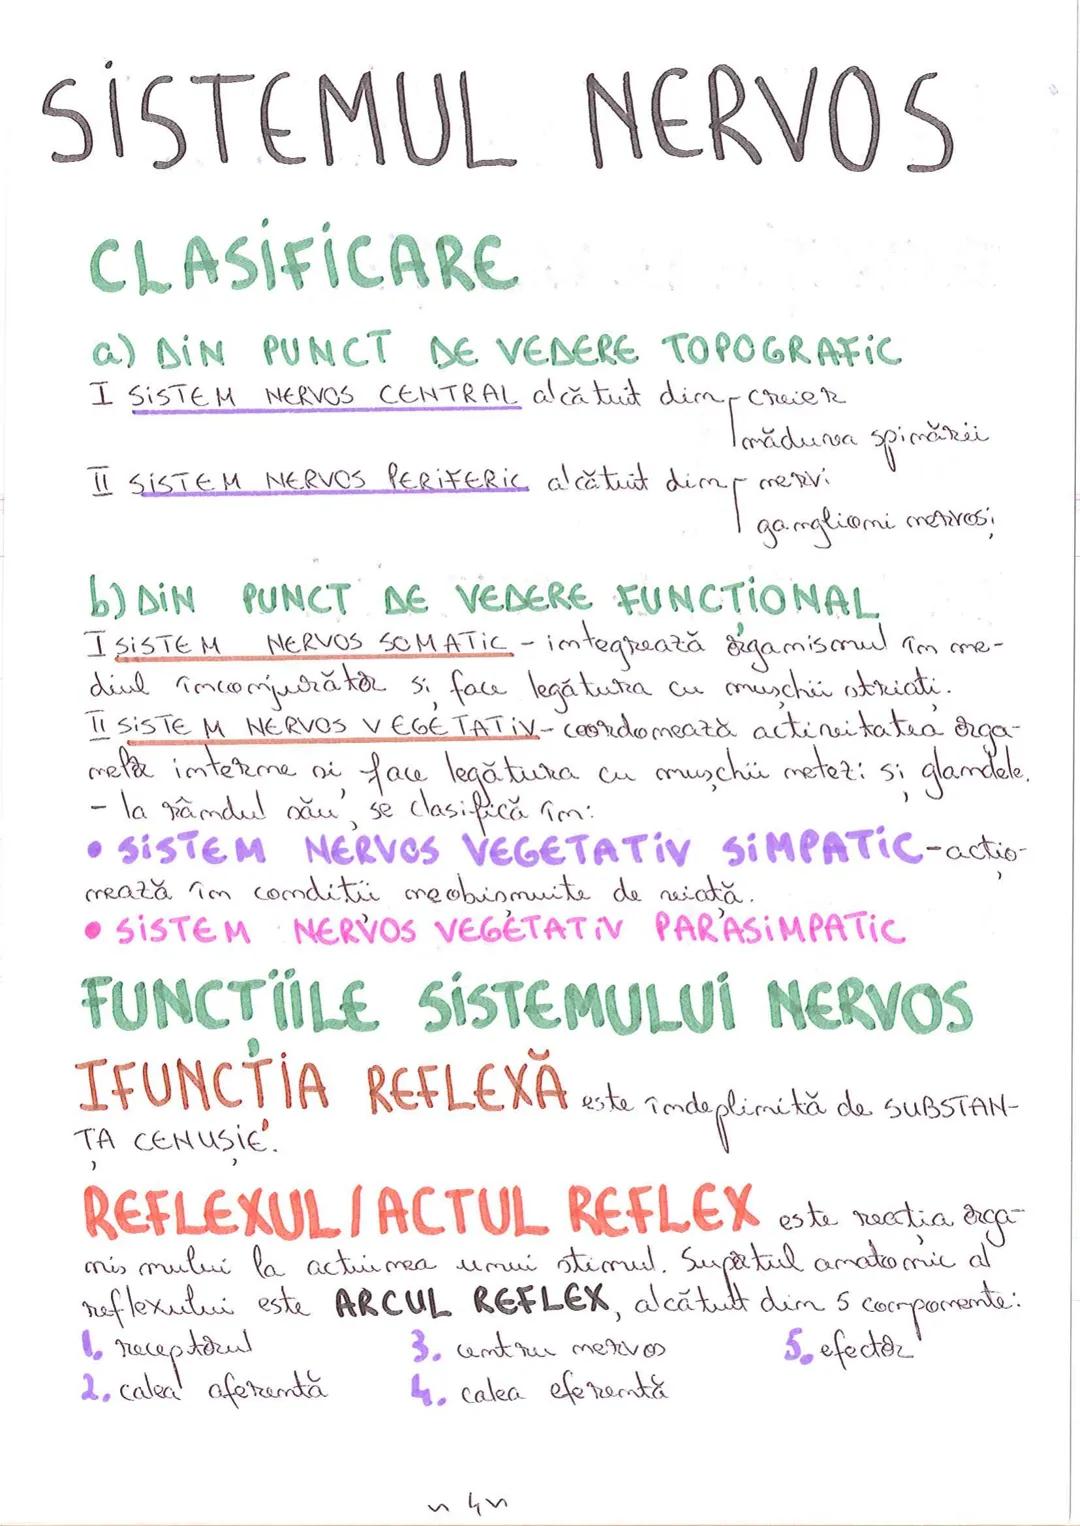 SISTEMUL NERVOS
CLASIFICARE
a) DIN PUNCT DE VEDERE TOPOGRAFIC
I SISTEM NERVOS CENTRAL alcătuit din creier
măduva spinării
II SISTEM NERVOS PERIFERIC alcătuit din nervi
ganglioni nervoși
b) DIN PUNCT DE VEDERE FUNCȚIONAL
I SISTEM NERVOS SOMATIC - integrează organismul în me-
diul înconjurător și face legătura cu mușchii striați.
II SISTEM NERVOS VEGETATIV - coordonează activitatea orga-
nelor interne și face legătura cu mușchii netezi și glandele.
- la rândul său, se clasifică în:
• SISTEM NERVOS VEGETATIV SIMPATIC - acțio-
nează în condiții neobișnuite de viață.
• SISTEM NERVOS VEGETATIV PARASIMPATIC
FUNCȚIILE SISTEMULUI NERVOS
I FUNCȚIA REFLEXĂ este îndeplinită de SUBSTAN-
ȚA CENUȘIE.
REFLEXUL/ACTUL REFLEX este reacția orga-
nismului la acțiunea unui stimul. Suportul anatomic al
reflexului este ARCUL REFLEX, alcătuit din 5 componente:
1. receptorul 3. centru nervos 5. efector
2. calea aferentă 4. calea eferentă
~ 4 ~